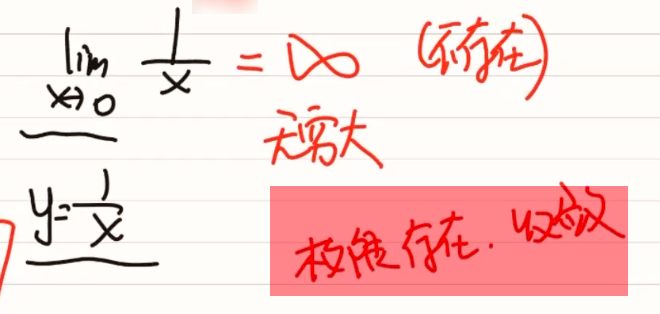 lim x→0 1/x = ∞ (不存在)
无穷大
y=1/x
极限存在.收敛